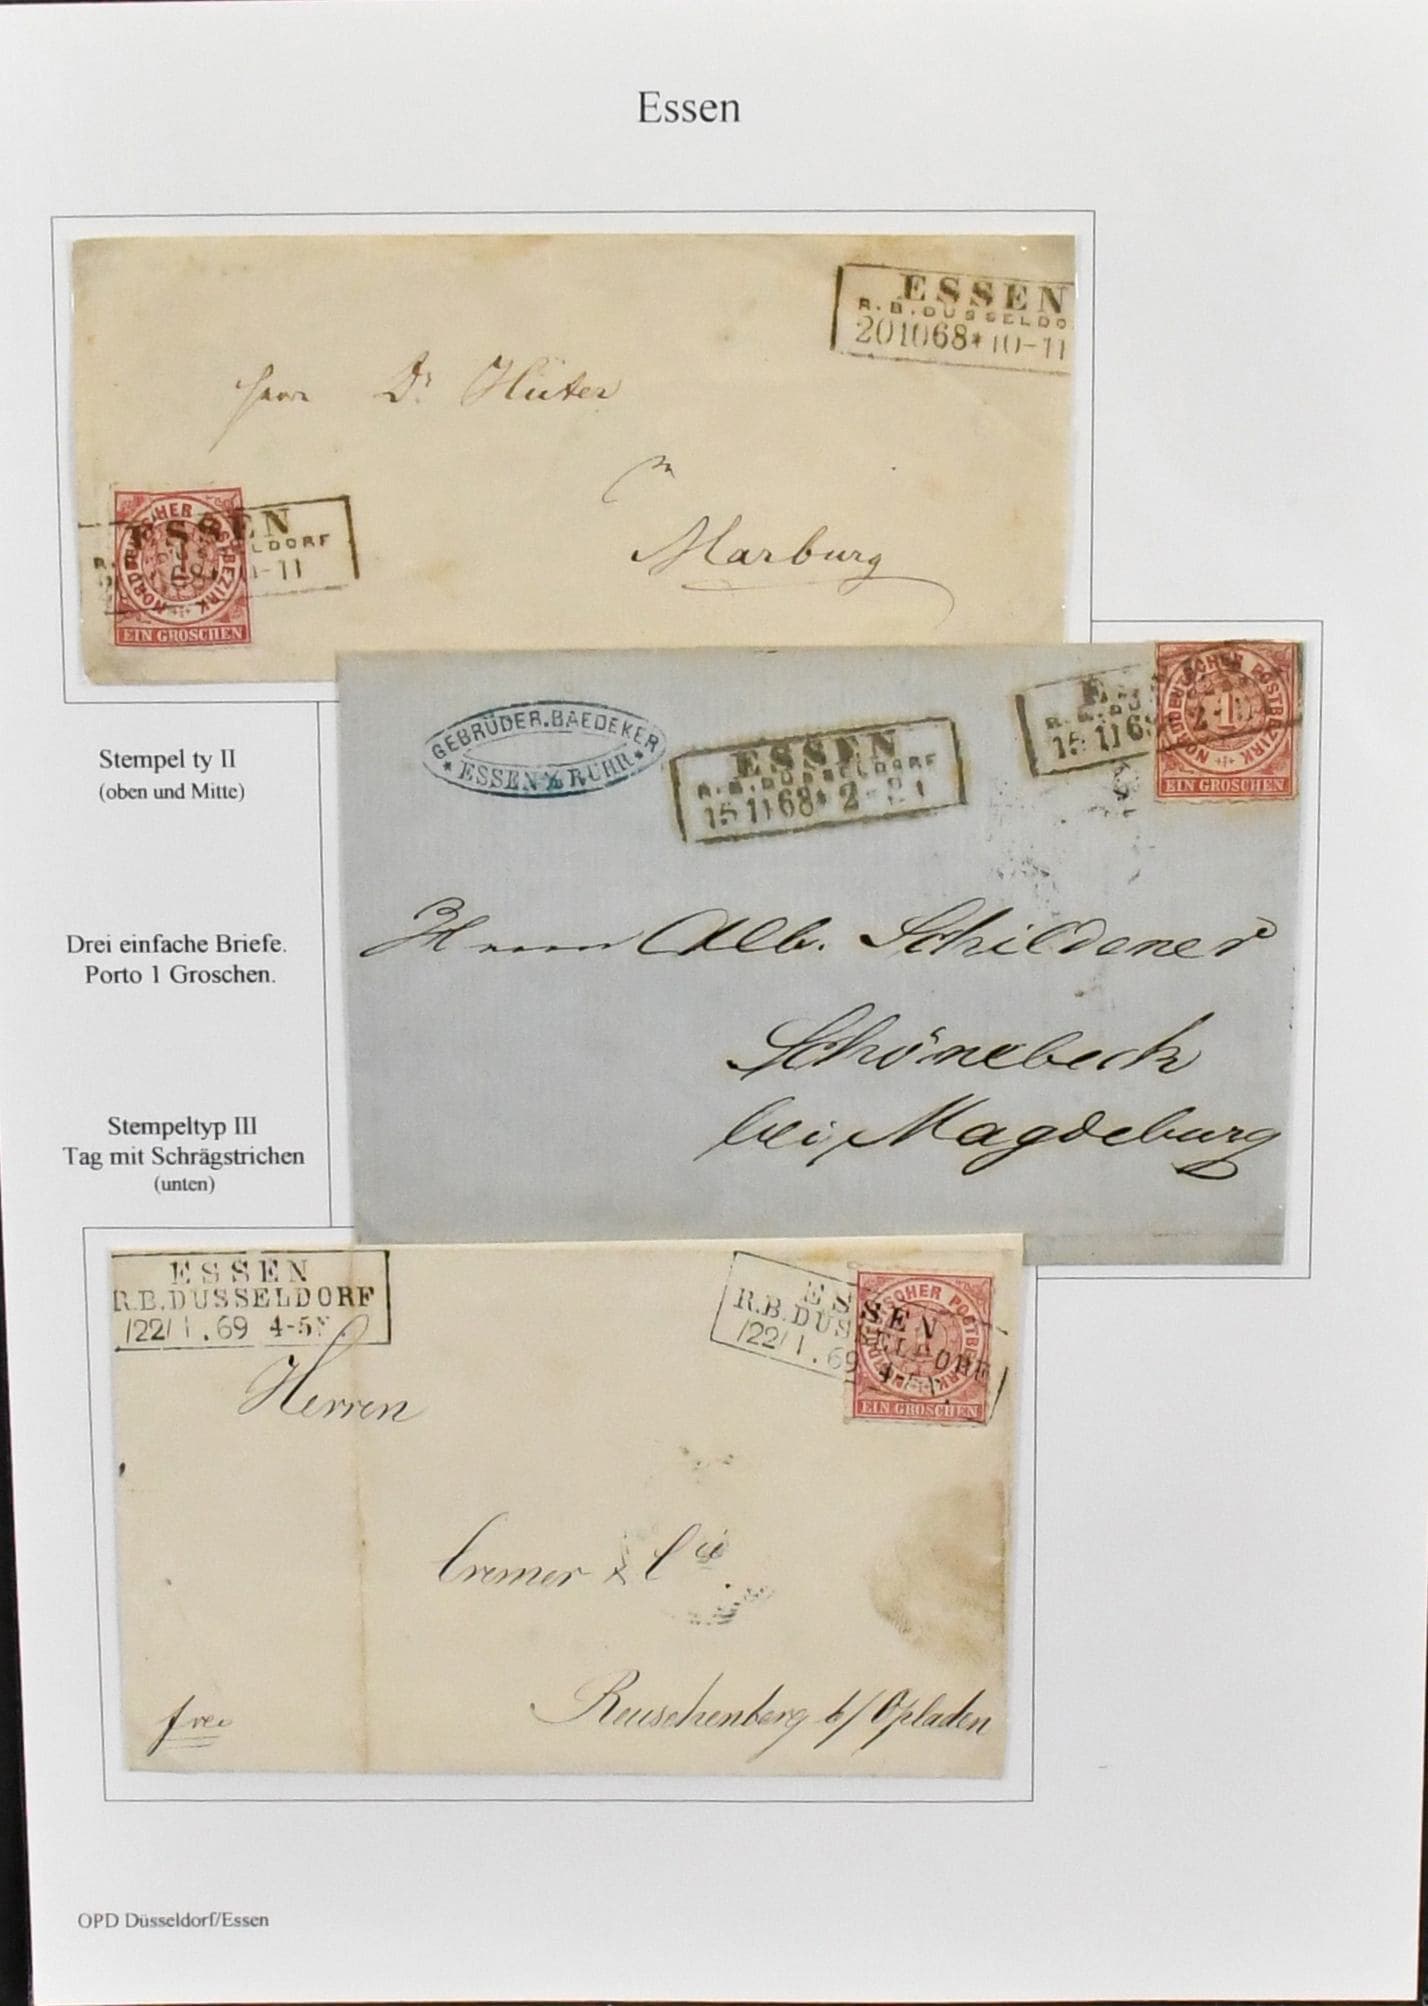 Essen
ESSEN
R.B.DUSSELDO
201068*10-11
Herr Dr Hüter
Marburg
ESSEN
LDORF
68
-11
NORDDEUTSCHER POSTBEZIRK
EIN GROSCHEN
Stempel ty II
(oben und Mitte)
GEBRÜDER.BAEDEKER
* ESSEN a/d RUHR *
ESSEN
R.B.DUSSELDORF
15 11 68*2-
15 11 68
NORDDEUTSCHER POSTBEZIRK
1
EIN GROSCHEN
Drei einfache Briefe.
Porto 1 Groschen.
Herrn Alb. Schildener
Schönebeck
bei Magdeburg
Stempeltyp III
Tag mit Schrägstrichen
(unten)
ESSEN
R.B.DUSSELDORF
/22/1.69 4-5N.
ESSEN
R.B.DUSSELDORF
/22/1.69
NORDDEUTSCHER POSTBEZIRK
EIN GROSCHEN
Herren
Cremer & Cie
frei
Reuschenberg b/Opladen
OPD Düsseldorf/Essen